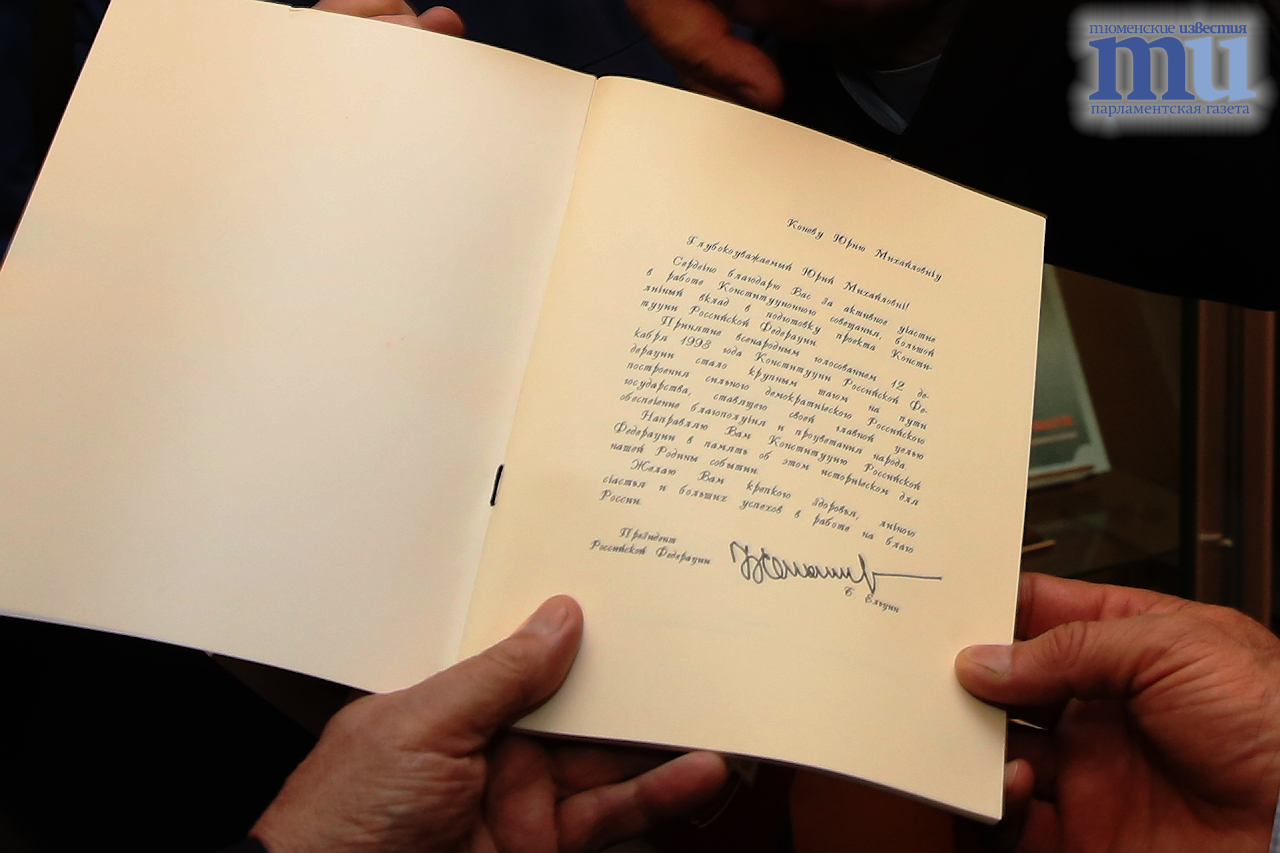 тюменские известия
ти
парламентская газета
Коневу Юрию Михайловичу
Глубокоуважаемый Юрий Михайлович!
Сердечно благодарю Вас за активное участие
в работе Конституционного совещания, большой
личный вклад в подготовку проекта Консти-
туции Российской Федерации.
Принятие всенародным голосованием 12 де-
кабря 1993 года Конституции Российской Фе-
дерации стало крупным шагом на пути
построения сильного демократического Российского
государства, ставящего своей главной целью
обеспечение благополучия и процветания народа.
Направляю Вам Конституцию Российской
Федерации в память об этом историческом для
нашей Родины событии.
Желаю Вам крепкого здоровья, личного
счастья и больших успехов в работе на благо
России.
Президент
Российской Федерации
Б. Ельцин